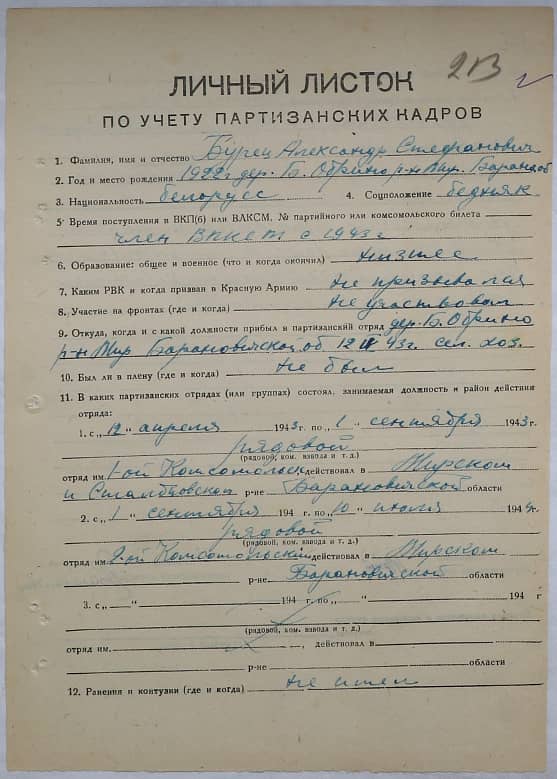 213
ЛИЧНЫЙ ЛИСТОК
ПО УЧЕТУ ПАРТИЗАНСКИХ КАДРОВ
1. Фамилия, имя и отчество Бурец Александр Стефанович
2. Год и место рождения 1922 г дер. Б. Обрино р-н Мир. Баранов. об
3. Национальность белорусс 4. Соцположение бедняк
5. Время поступления в ВКП(б) или ВЛКСМ, № партийного или комсомольского билета
член ВЛКСМ с 1943 г
6. Образование: общее и военное (что и когда окончил) низшее
7. Каким РВК и когда призван в Красную Армию Не призывался
8. Участие на фронтах (где и когда) Не участвовал
9. Откуда, когда и с какой должности прибыл в партизанский отряд дер. Б. Обрино
р-н Мир Барановичской об 12 IV 43 г. сел. хоз.
10. Был ли в плену (где и когда) Не был
11. В каких партизанских отрядах (или группах) состоял, занимаемая должность и район действия
отряда:
1. с „12" апреля 1943 г. по „1" сентября 1943 г.
рядовой
(рядовой, ком. взвода и т. д.)
отряд им. 1-ой Комсомольск действовал в Мирском
и Столбцовском р-не Барановичской области
2. с „1" сентября 194 г. по „10" июля 1944 г.
рядовой
(рядовой, ком. взвода и т. д.)
отряд им. 2-ой Комсомольский действовал в Мирском
р-не Барановичской области
3. с „ " 194 г. по „ " 194 г
(рядовой, ком. взвода и т. д.)
отряд им. , действовал в
р-не области
12. Ранения и контузии (где и когда) не имел